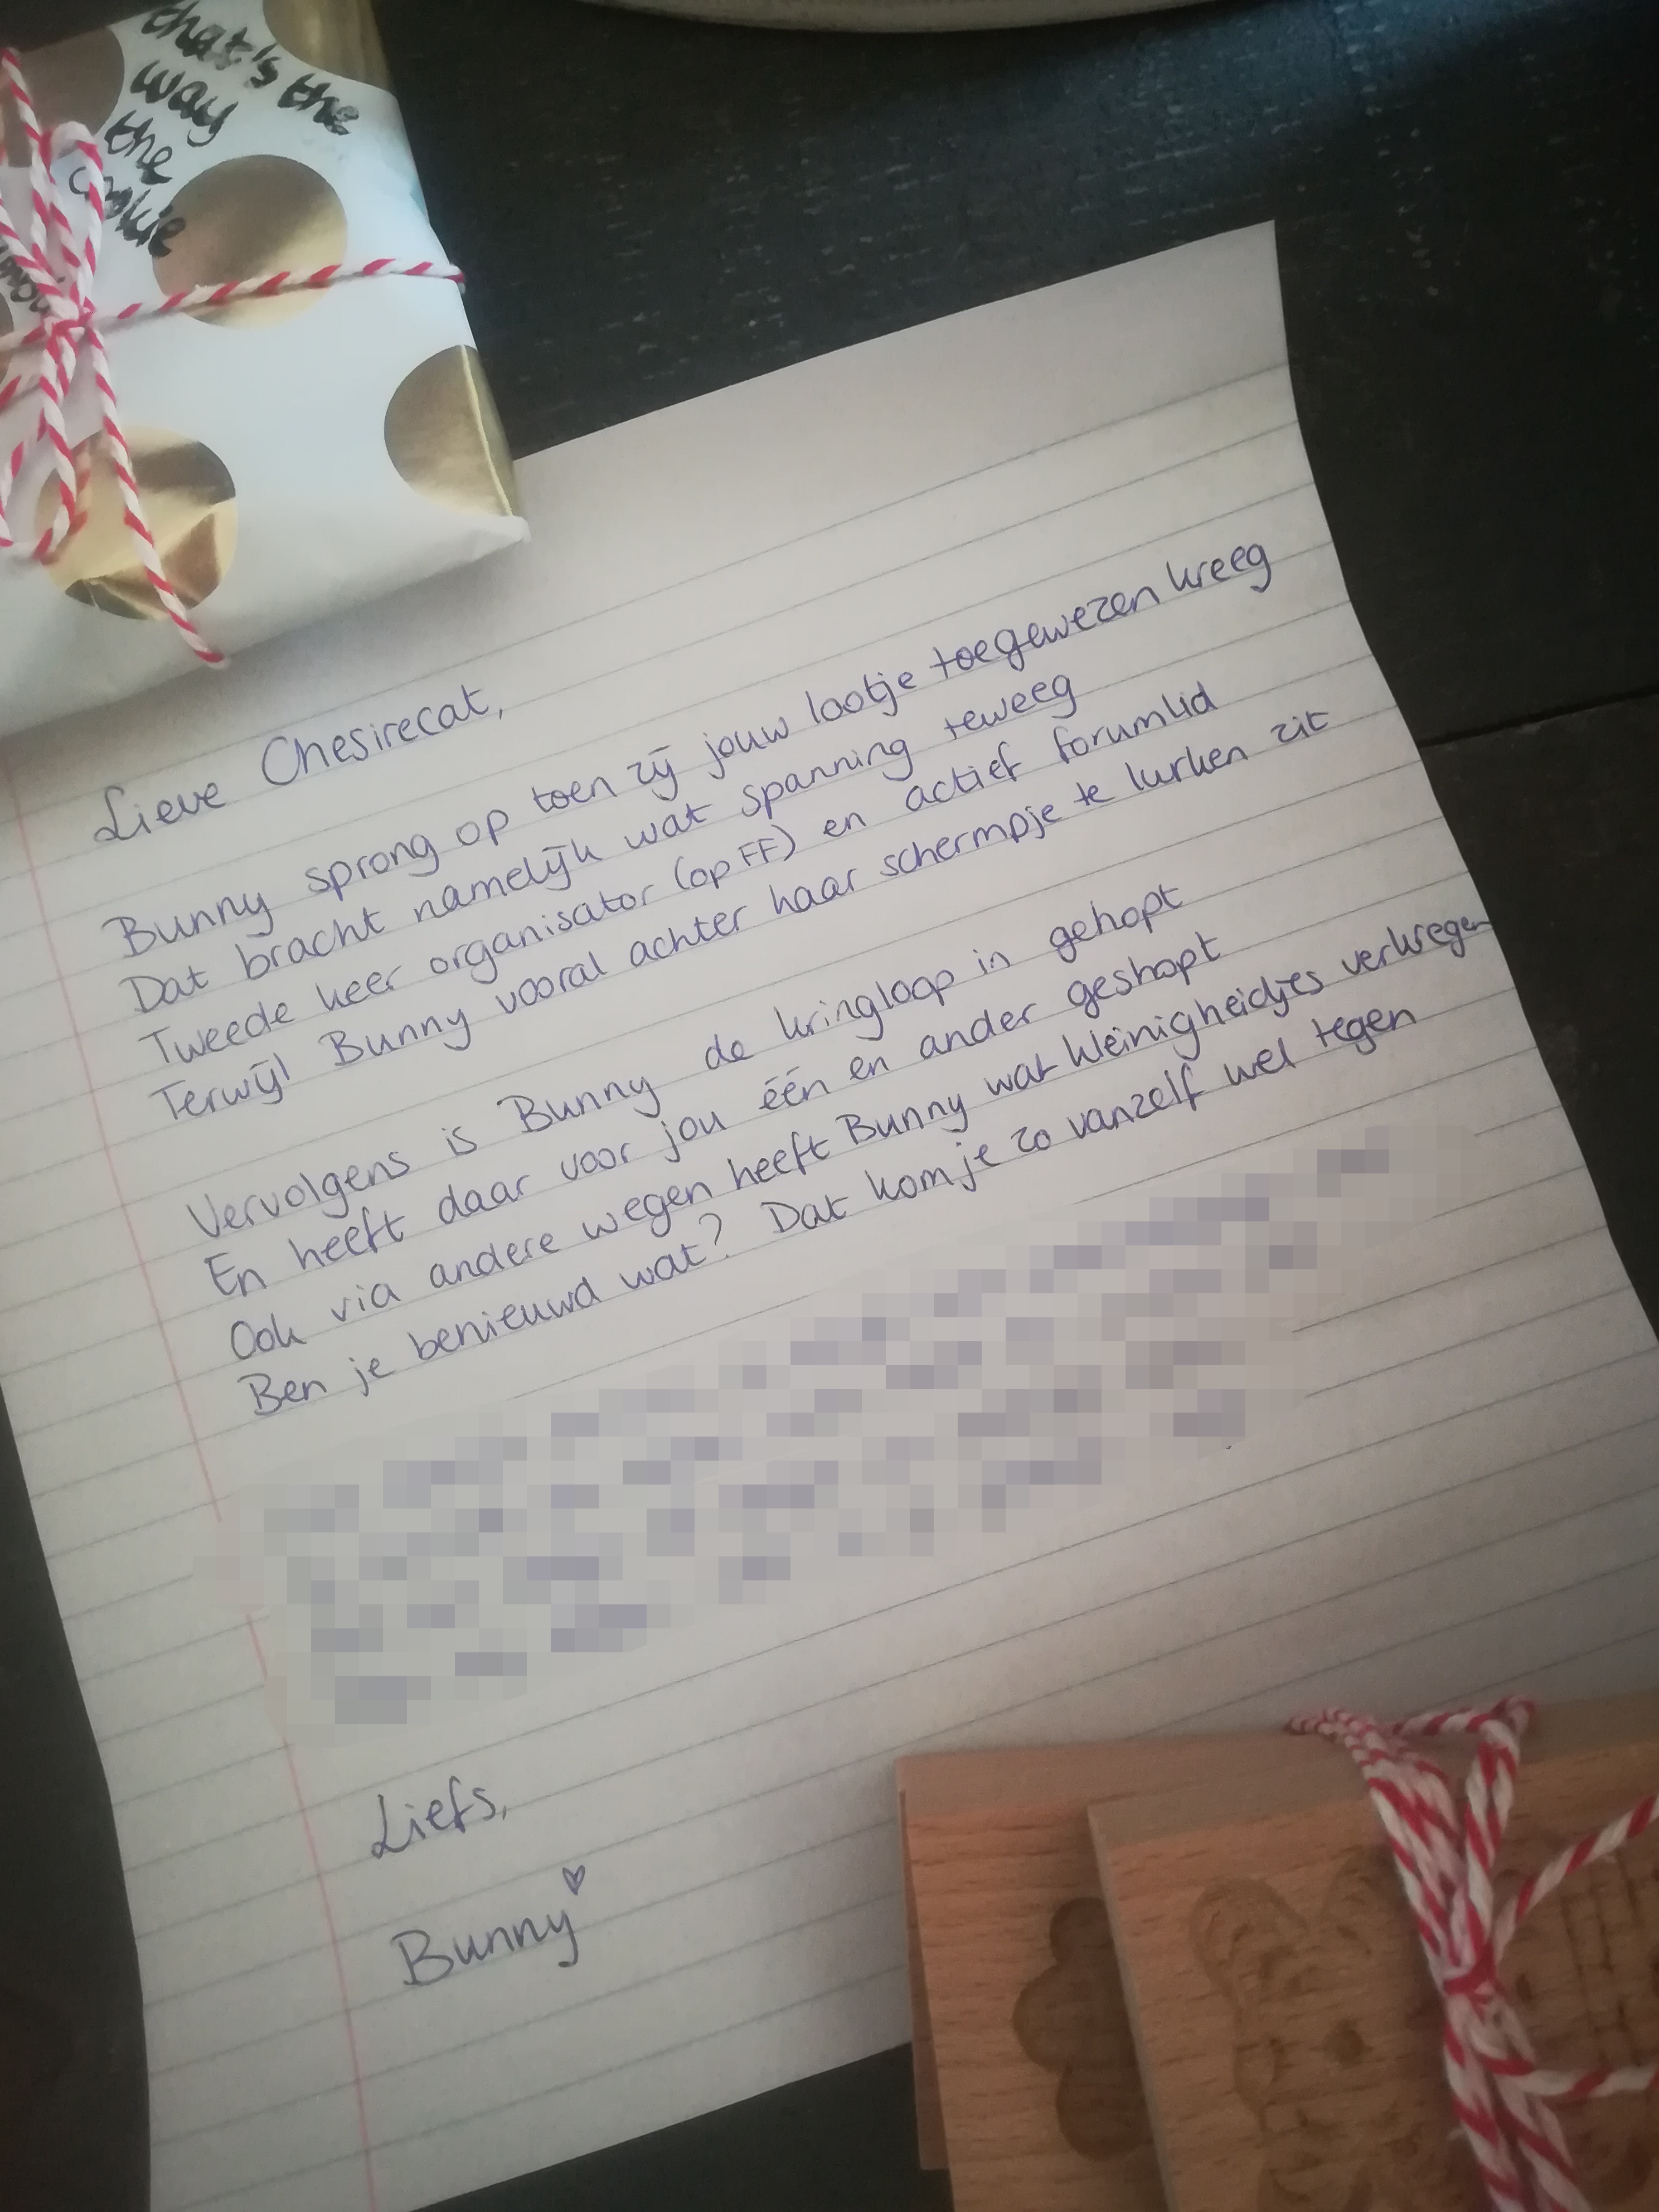 that's the
way
the
cookie
Lieve Chesirecat,
Bunny sprong op toen zij jouw lootje toegewezen kreeg
Dat bracht namelijk wat spanning teweeg
Tweede keer organisator (op FF) en actief forumlid
Terwijl Bunny vooral achter haar schermpje te lurken zit
Vervolgens is Bunny de kringloop in gehopt
En heeft daar voor jou één en ander geshopt
Ook via andere wegen heeft Bunny wat kleinigheidjes verkregen
Ben je benieuwd wat? Dat kom je zo vanzelf wel tegen
Liefs,
Bunny